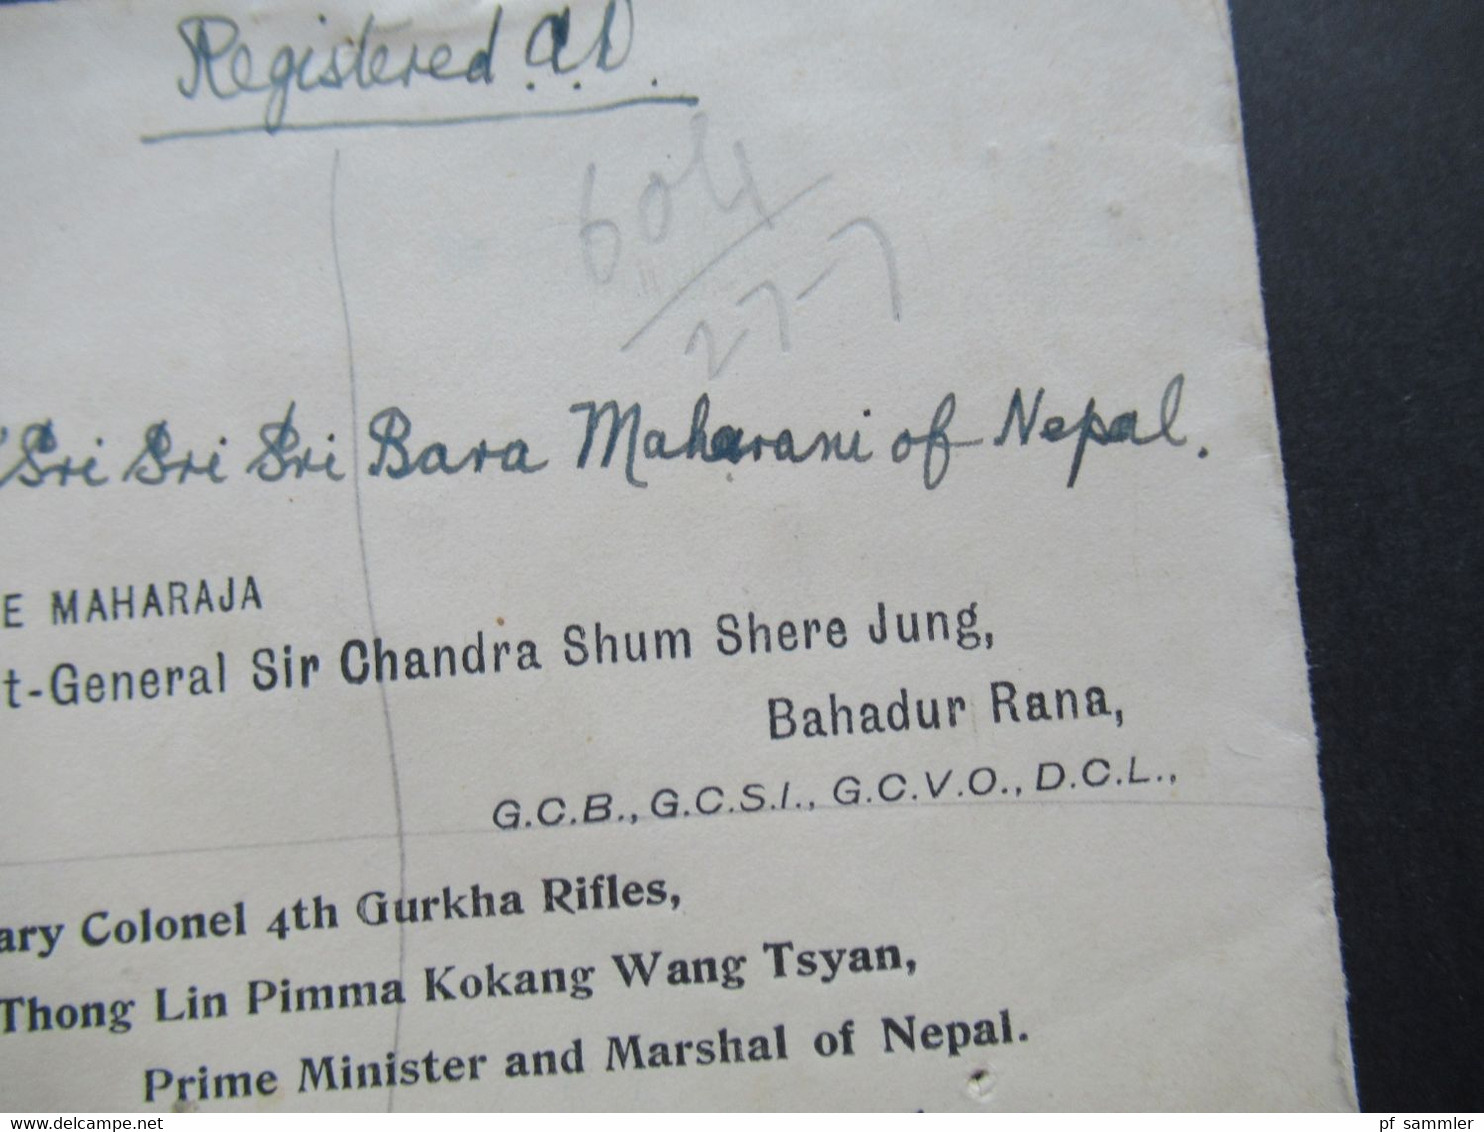 Registered A.D.
604
27-7
Sri Sri Sri Bara Maharani of Nepal.
E MAHARAJA
t-General Sir Chandra Shum Shere Jung,
Bahadur Rana,
G.C.B., G.C.S.I., G.C.V.O., D.C.L.,
ary Colonel 4th Gurkha Rifles,
Thong Lin Pimma Kokang Wang Tsyan,
Prime Minister and Marshal of Nepal.
delcampe.net
pf_sammler